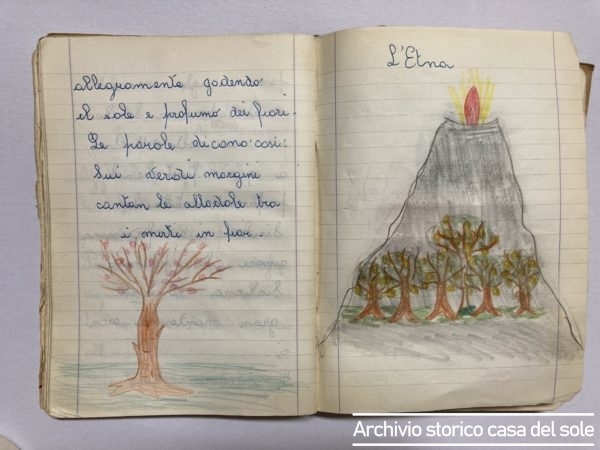 allegramente godendo
il sole e profumo dei fiori.
Le parole dicono così:
Sui verdi margini
cantan le allodole tra
i mirti in fior.
L'Etna
Archivio storico casa del sole